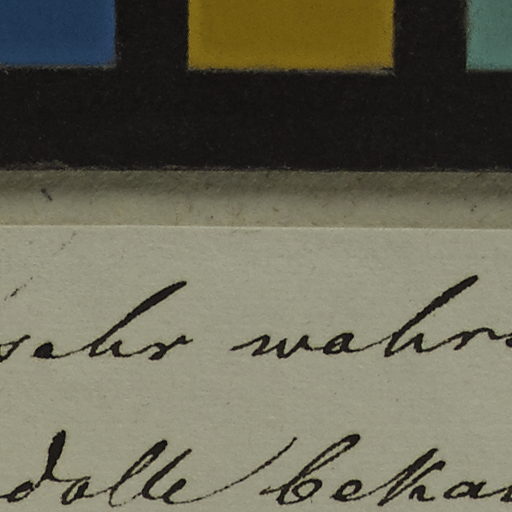 sehr wahrs
dolle bekan